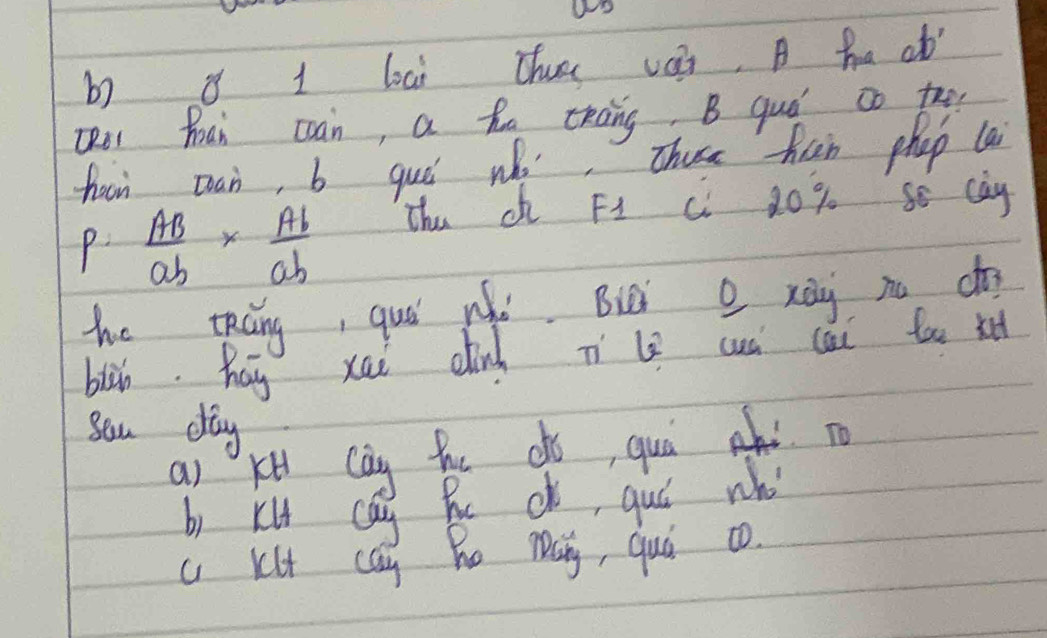 b) ở 1 loài thực vật. A hoa đỏ
trội hoàn toàn, a hoa trắng, B quả to trội
hoàn toàn, b quả nhỏ, Thực hiện phép lai
P: AB/ab × Ab/ab Thu đc F1 có 20% số cây
hoa trắng, quả nhỏ. Biết 0 xảy ra đột
biến. hãy xác định Tỉ lệ của các loại KH
sau đây
a) KH cây hoa đỏ, quả to
b) KH cây hoa đỏ, quả nhỏ
c KH cây hoa trắng, quả to.